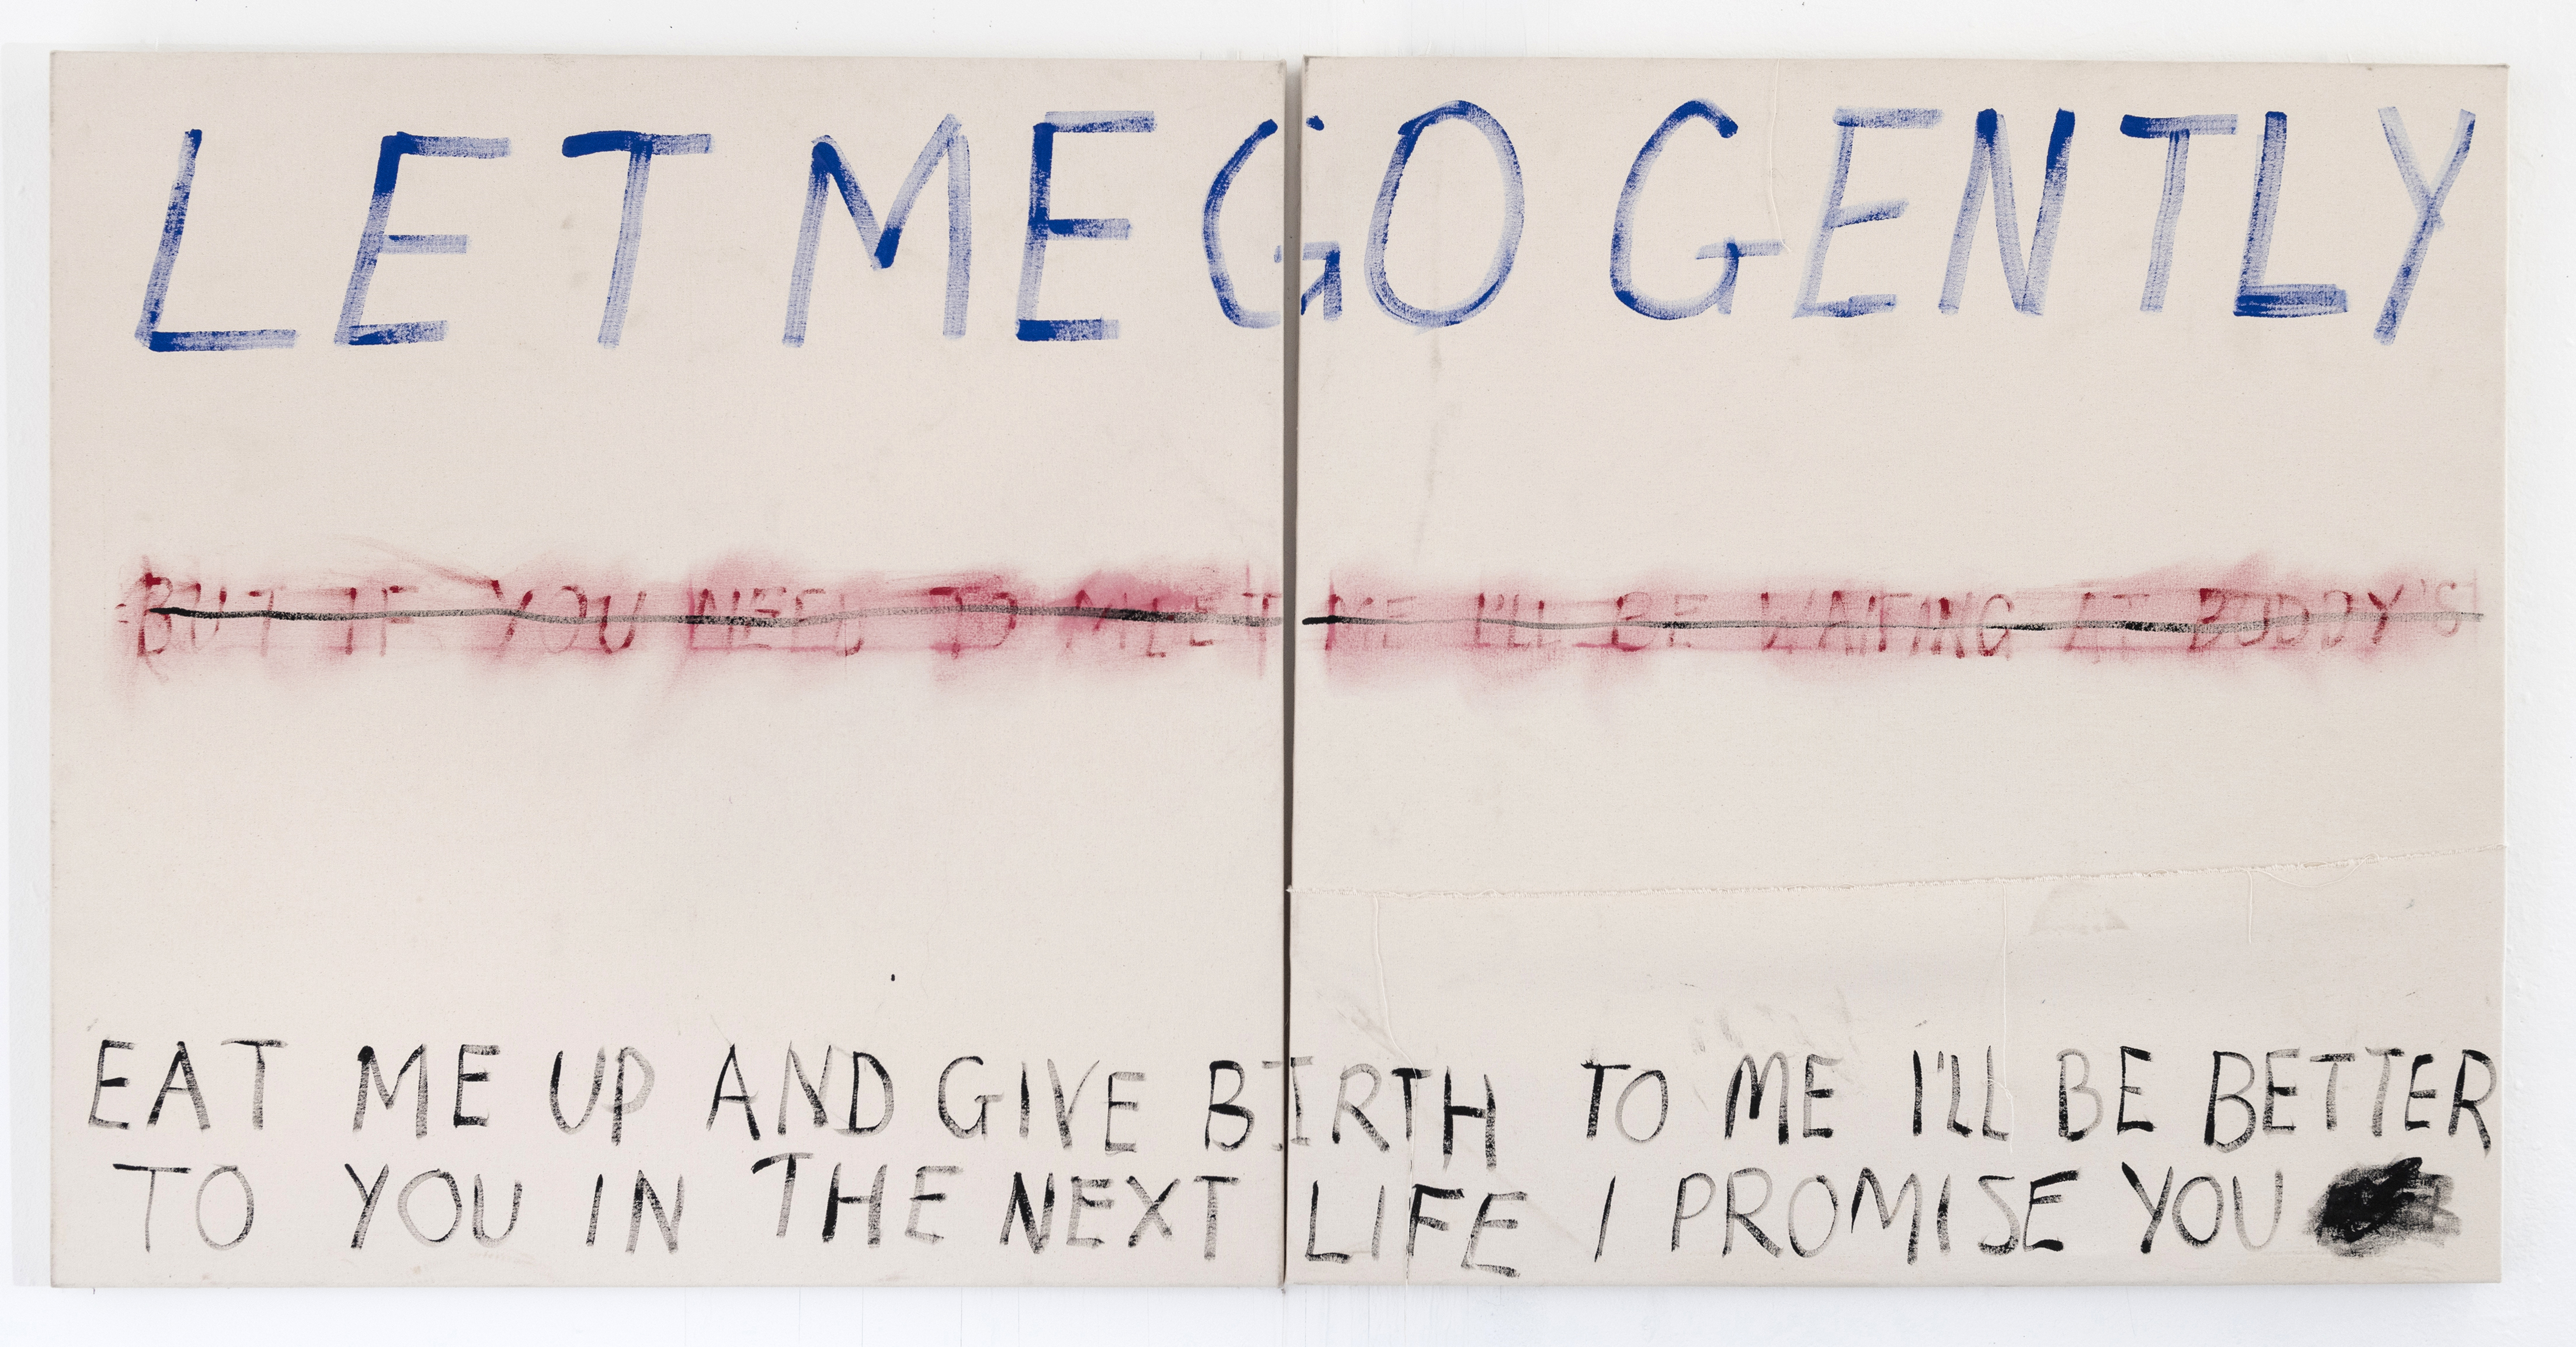 LET ME GO GENTLY
BUT IF YOU NEED TO MEET ME I'LL BE WAITING AT BUDDY'S
EAT ME UP AND GIVE BIRTH TO ME I'LL BE BETTER
TO YOU IN THE NEXT LIFE I PROMISE YOU